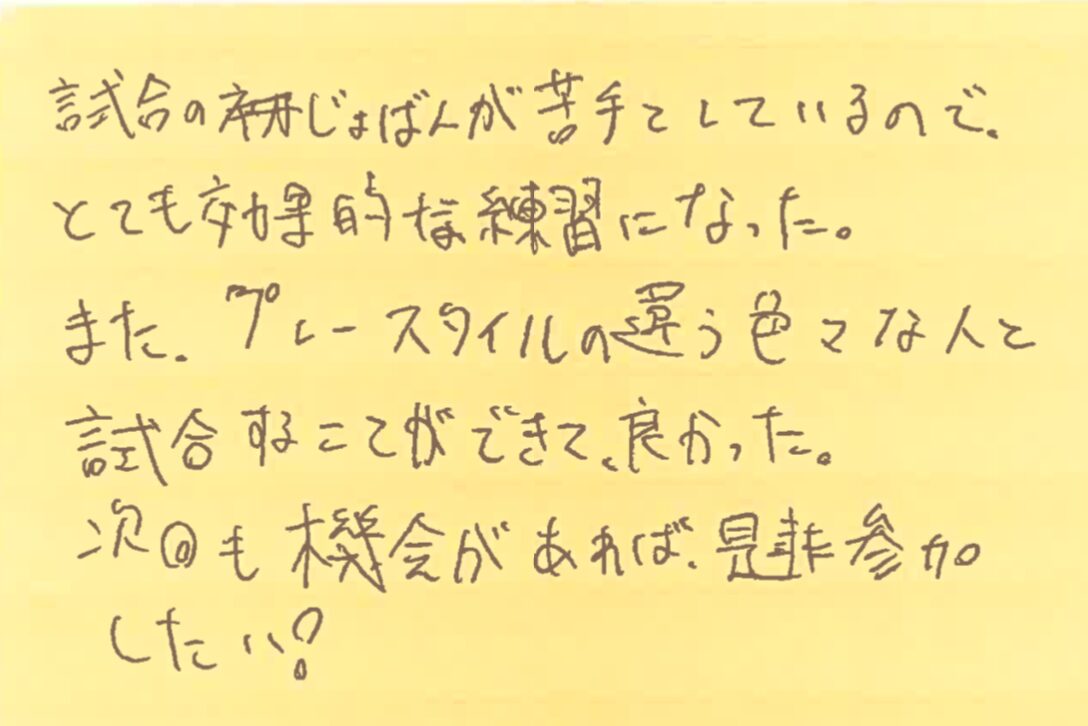 試合のじょばんが苦手としているので、
とても効果的な練習になった。
また、プレースタイルの違う色々な人と
試合することができて、良かった。
次回も機会があれば、是非参加
したい!